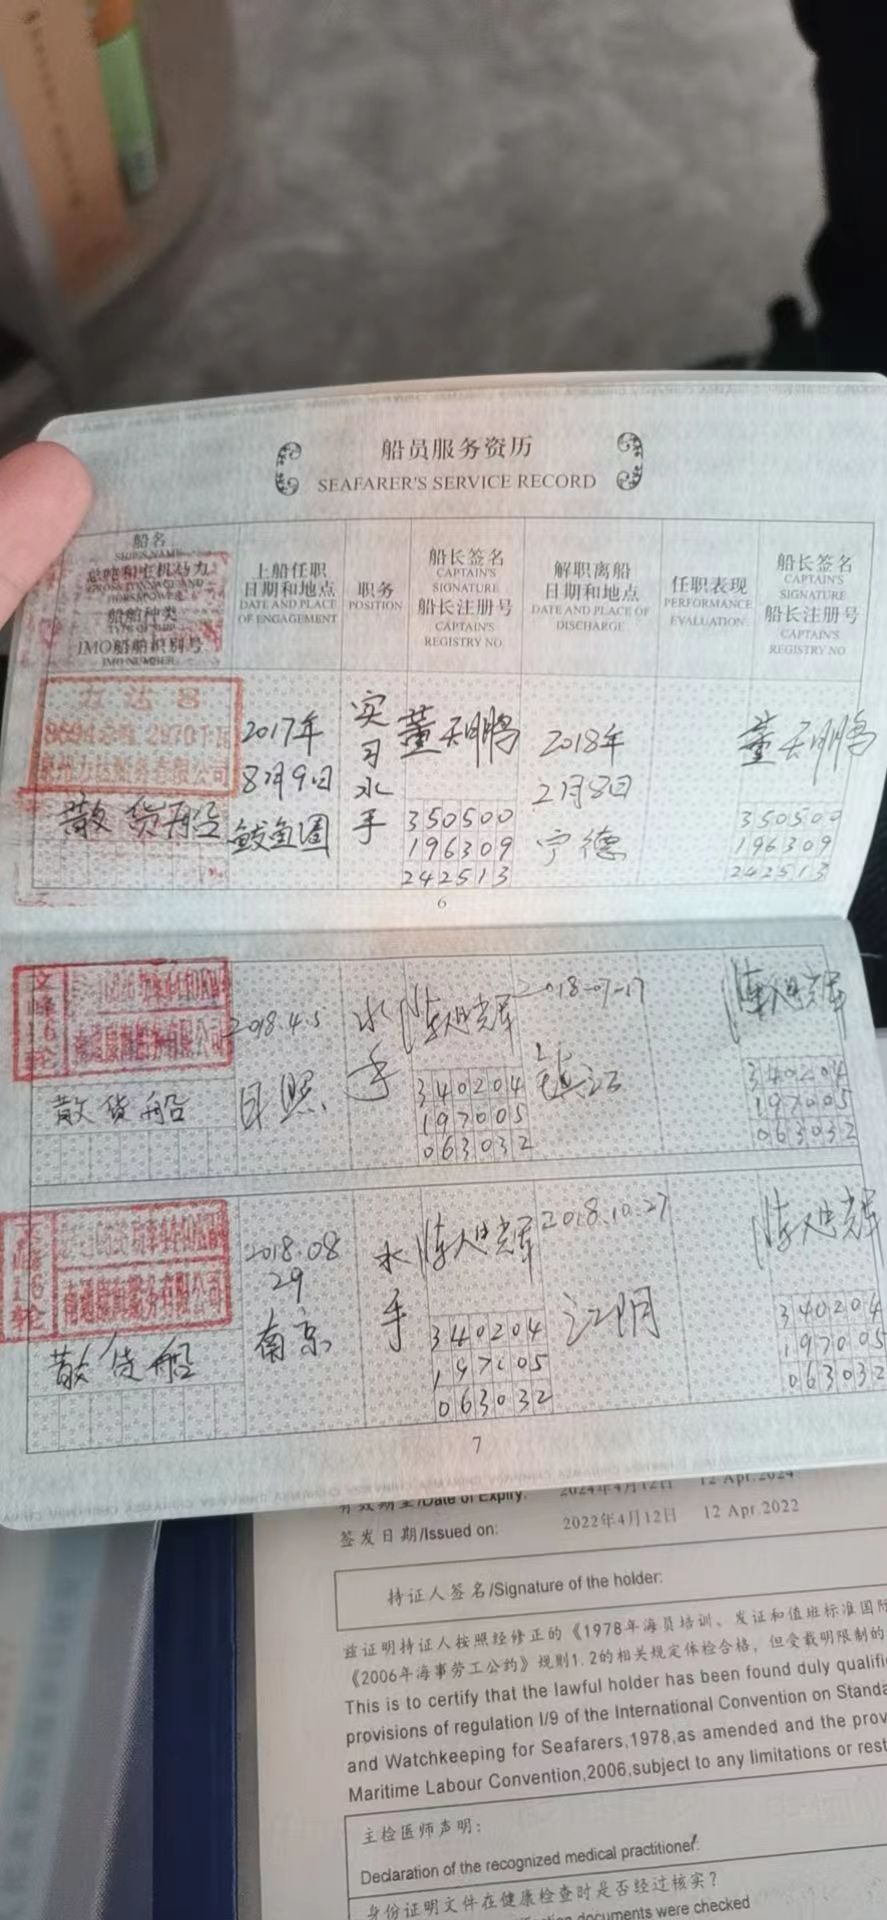 船员服务资历
SEAFARER'S SERVICE RECORD
船名
SHIP'S NAME
总吨和主机马力
GROSS TONNAGE AND
HORSPOWER
船舶种类
TYPE OF SHIP
IMO船舶识别号
IMO NUMBER
上船任职
日期和地点
DATE AND PLACE
OF ENGAGEMENT
职务
POSITION
船长签名
CAPTAIN'S
SIGNATURE
船长注册号
CAPTAIN'S
REGISTRY NO.
解职离船
日期和地点
DATE AND PLACE OF
DISCHARGE
任职表现
PERFORMANCE
EVALUATION
船长签名
CAPTAIN'S
SIGNATURE
船长注册号
CAPTAIN'S
REGISTRY NO
力达昌
泉州力达船务有限公司
散货船
2017年
8月9日
鲅鱼圈
实
习
水
手
董天鹏
350500
196309
242513
2018年
2月8日
宁德
董天鹏
350500
196309
242513
6
南通康海船务有限公司
散货船
2018.4.5
日照
水
手
340204
197005
063032
2018-07-17
镇江
340204
197005
063032
南通康海船务有限公司
散货船
2018.08
29
南京
水
手
340204
197005
063032
2018.10.27
江阴
340204
197005
063032
7
有效期至/Date of Expiry:
2024年4月12日 12 Apr.2024
签发日期/Issued on:
2022年4月12日 12 Apr.2022
持证人签名/Signature of the holder:
兹证明持证人按照经修正的《1978年海员培训、发证和值班标准国际
《2006年海事劳工公约》规则1.2的相关规定体检合格，但受载明限制的
This is to certify that the lawful holder has been found duly qualifi
provisions of regulation I/9 of the International Convention on Standa
and Watchkeeping for Seafarers,1978,as amended and the prov
Maritime Labour Convention,2006,subject to any limitations or rest
主检医师声明：
Declaration of the recognized medical practitioner:
身份证明文件在健康检查时是否经过核实？
documents were checked